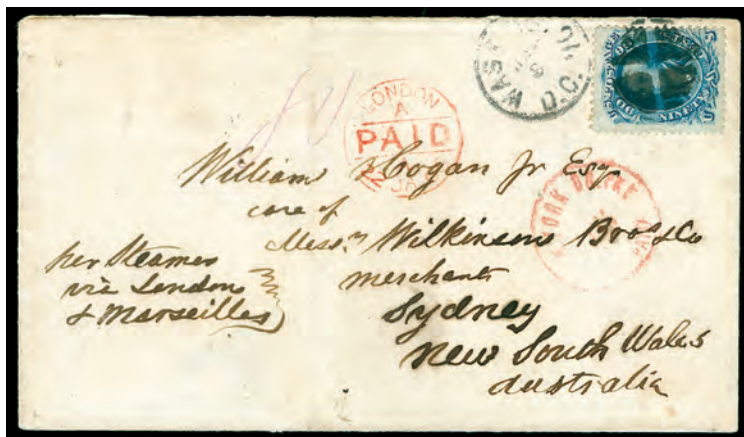 LONDON
A
PAID
WAS
D.C.
U.S. POSTAGE
William Hogan Jr Esq
care of
Messrs Wilkinson Bros & Co
merchants
Sydney
New South Wales
Australia
per Steamer
via London
& Marseilles